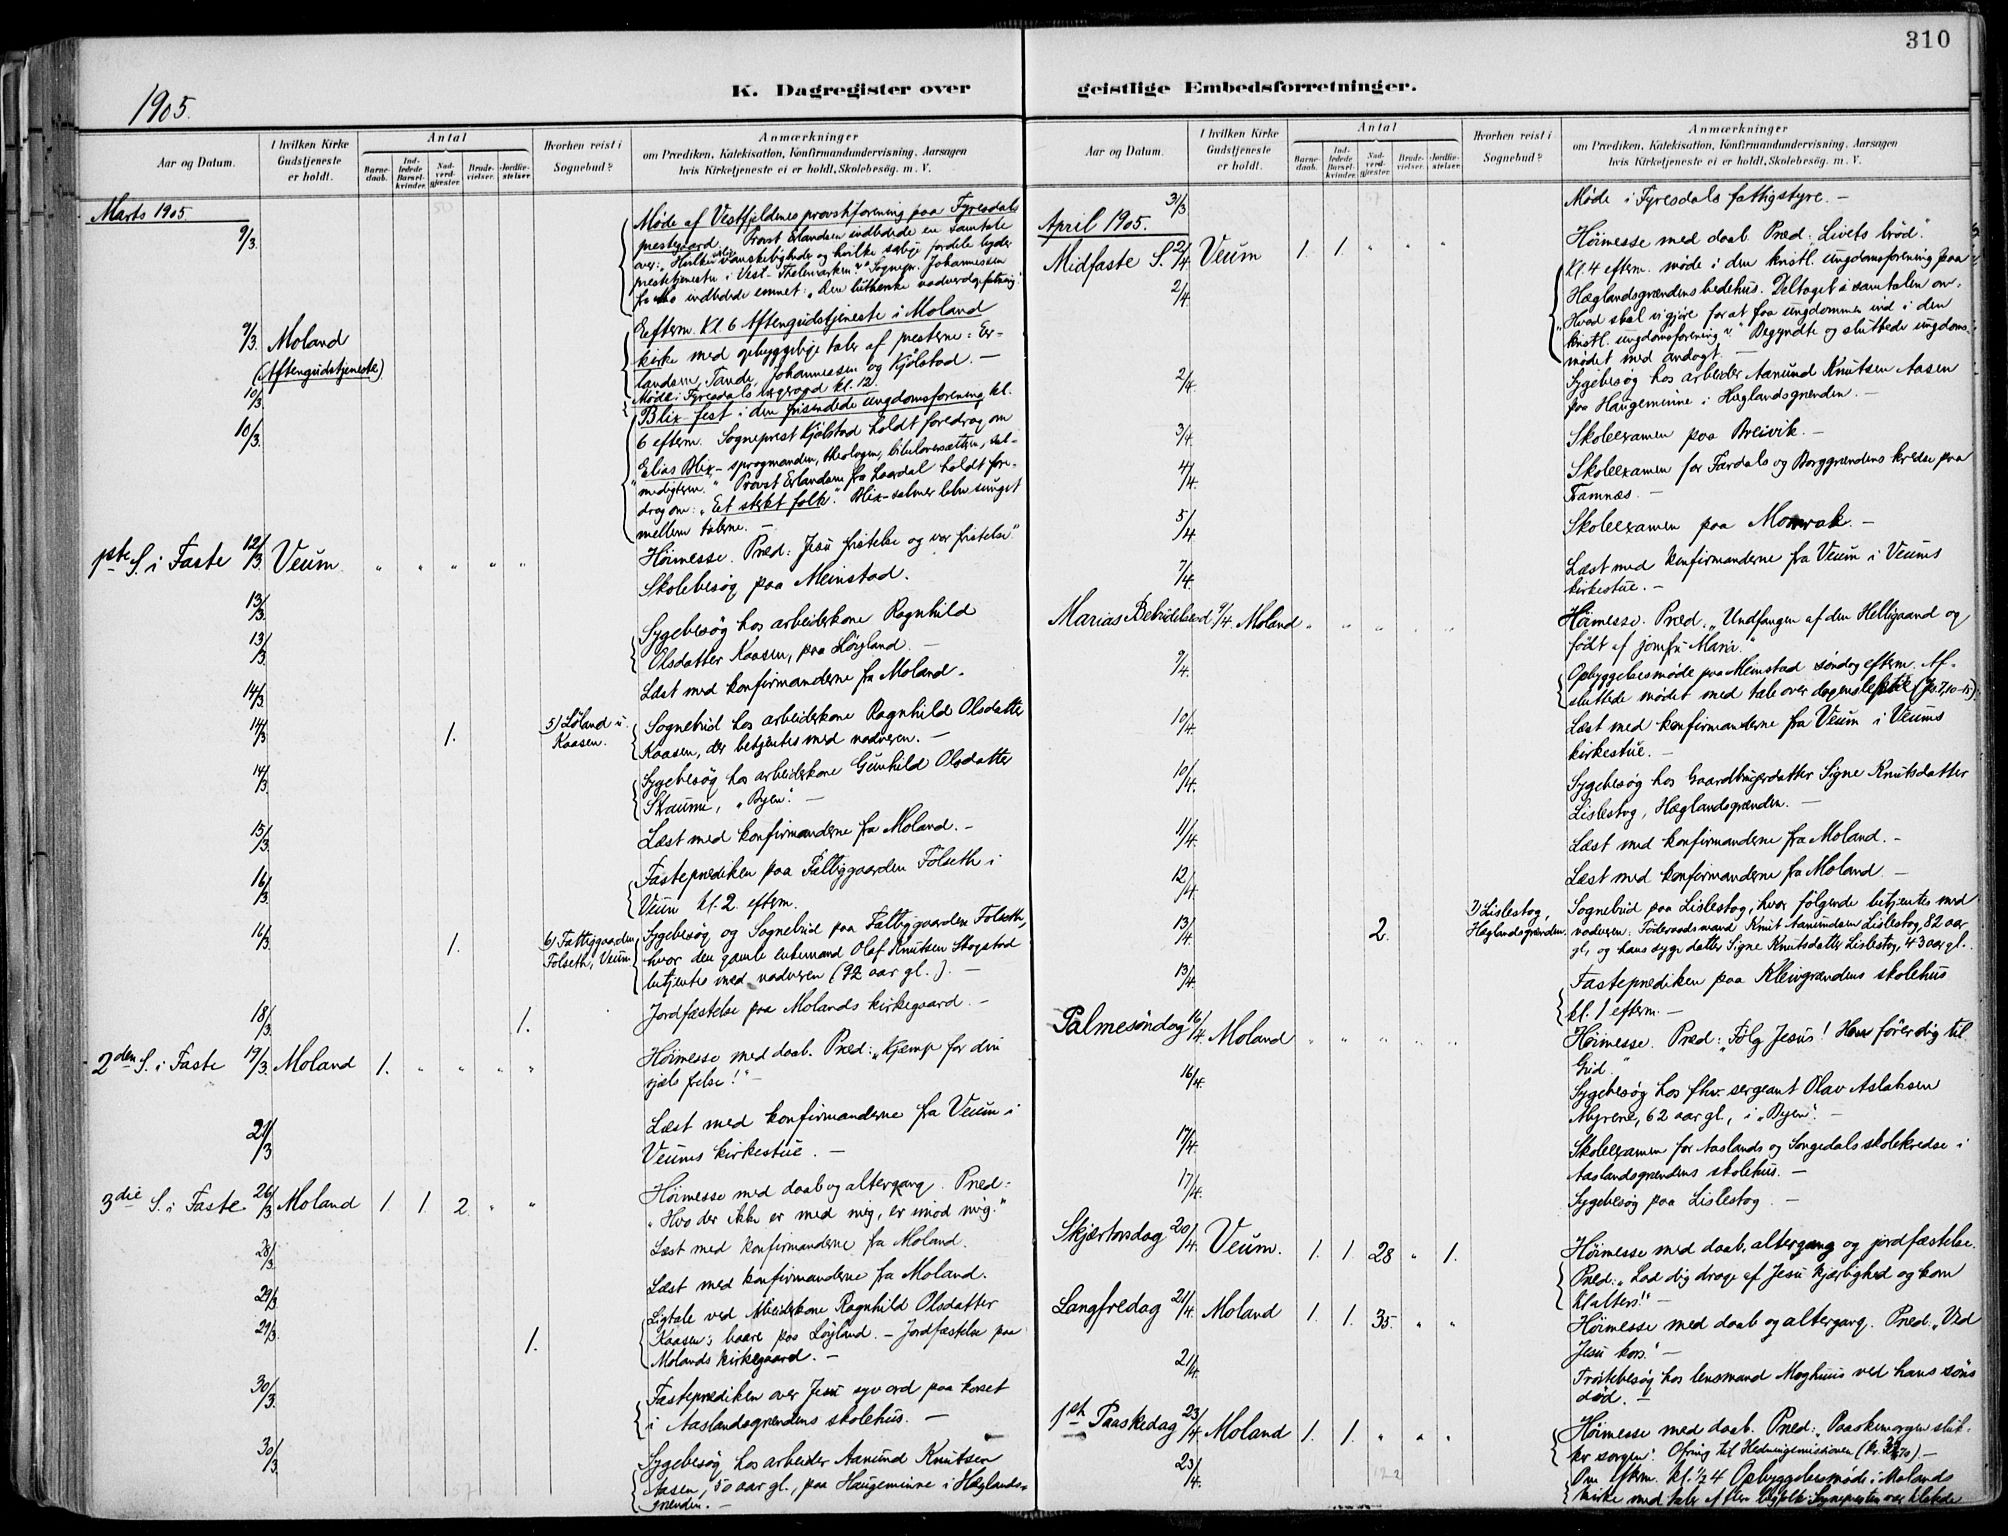 310
K. Dagregister over geistlige Embedsforretninger.
1905.
Aar og Datum.
I hvilken Kirke Gudstjeneste er holdt.
Antal
Barne-daab.
Ind-ledede Barsel-kvinder.
Nad-verd-gjæster.
Brude-vielser.
Jordfæ-stelser.
Hvorhen reist i Sognebud?
Anmærkninger
om Prædiken, Katekisation, Konfirmandundervisning, Aarsagen
hvis Kirketjeneste ei er holdt, Skolebesøg. m. V.
Marts 1905
9/3. Møde af Vestfjeldenes provstiforening paa Fyresdals
prestegaard. Provst Erlandsen indledede en samtale
over: "Hvilke vanskeligheder og hvilke særlige fordele byder
prestetjenesten i Vest. Thelemarken?" Sognepr. Johannessen
fra Mo indledede emnet: "Den lutherske nadverdopfatning."
9/3. Moland
(Aftengudstjeneste)
Eefterm. Kl. 6 Aftengudstjeneste i Moland
kirke med opbyggelige taler af presterne: Er-
landsen, Tande, Johannessen og Kjølstad. —
10/3. Møde i Fyresdals lægeraad kl. 12.
10/3. Blix-fest i den frisindede ungdomsforening kl.
6 efterm. Sogneprest Kjølstad holdt foredrag om
"Elias Blix – sprogmanden, theologen, bibeloversætteren, sal-
medigteren." Provst Erlandsen fra Laardal holdt fore-
drag om: "Et sterkt folk". Blix-salmer blev sunget
mellem talerne. —
1ste S. i Faste 12/3 Veum. " " " " "
Høimesse. Præd: Jesu fristelse og vor fristelse."
Skolebesøg paa Meinstad.
13/3.
13/3. Sygebesøg hos arbeiderkone Ragnhild
Olsdatter Kaasen, paa Løyland. —
14/3. Læst med konfirmanderne fra Moland.
14/3 1. 5) Løland u. Kaasen.
Sognebud hos arbeiderkone Ragnhild Olsdatter
Kaasen, der betjentes med nadveren. —
14/3. Sygebesøg hos arbeiderkone Gunhild Olsdatter
Straume, "Byen". —
15/3. Læst med konfirmanderne fra Moland. —
16/3. Fasteprædiken paa Fattiggaarden Folseth i
Veum kl. 2 efterm.
16/3. 1. 6) Fattiggaarden Folseth, Veum
Sygebesøg og Sognebud paa Fattiggaarden Folseth,
hvor den gamle enkemand Olaf Knutsen Skogstad
betjentes med nadveren (92 aar gl.). —
18/3. 1. Jordfæstelse paa Molands kirkegaard. —
2den S. i Faste 19/3. Moland 1. " " " "
Høimesse med daab. Præd: "Kjæmp for din
sjæls frelse!" —
21/3 Læst med konfirmanderne fra Veum i
Veums kirkestue. —
3die S. i Faste 26/3 Moland 1. 1 2. " "
Høimesse med daab og altergang. Præd:
"Hvo der ikke er med mig, er imod mig."
28/3. Læst med konfirmanderne fra Moland.
29/3. Læst med konfirmanderne fra Moland.
29/3. 1. Ligtale ved Arbeiderkone Ragnhild Olsdatter
Kaasen's baare paa Løyland. – Jordfæstelse paa
Molands kirkegaard. —
30/3. Fasteprædiken over Jesu syv ord paa korset
i Aaslandsgrændens skolehus. —
30/3. Sygebesøg hos arbeider Aanund Knutsen
Aasen, 50 aar gl., paa Haugeminne i Hæglands-
grænden. —
Aar og Datum.
I hvilken Kirke Gudstjeneste er holdt.
Antal
Barne-daab.
Ind-ledede Barsel-kvinder.
Nad-verd-gjæster.
Brude-vielser.
Jordfæ-stelser.
Hvorhen reist i Sognebud?
Anmærkninger
om Prædiken, Katekisation, Konfirmandundervisning, Aarsagen
hvis Kirketjeneste ei er holdt, Skolebesøg. m. V.
31/3 Møde i Fyresdals fattigstyre. —
April 1905.
Midfaste S. 2/4 Veum 1. 1. " " "
Høimesse med daab. Præd: "Livets brød".
2/4. Kl. 4 efterm. møde i den kristl. ungdomsforening paa
Hæglandsgrændens bedehus. Deltaget i samtalen om
"Hvad skal vi gjøre for at faa ungdommen ind i den
kristl. ungdomsforening?" Begyndte og sluttede ungdoms-
mødet med andagt. —
2/4. Sygebesøg hos arbeider Aanund Knutsen Aasen
paa Haugeminne i Hæglandsgrænden. —
3/4. Skoleexamen paa Breivik. —
4/4. Skoleexamen for Fardals og Borggrændens kredse paa
Framnæs. —
5/4 Skoleexamen paa Momrak. —
7/4. Læst med konfirmanderne fra Veum i Veums
kirkestue. —
Marias Bebudelsesd 9/4. Moland " " " " "
Høimesse. Præd. "Undfangen af den Helligaand og
født af jomfru Maria."
9/4. Opbyggelsesmøde paa Meinstad søndag efterm. Af-
sluttede mødet med tale over dagens
10/4. Læst med konfirmanderne fra Veum i Veums
kirkestue. —
10/4. Sygebesøg hos Gaardbrugerdatter Signe Knutsdatter
Lislestog, Hæglandsgrænden. —
11/4. Læst med konfirmanderne fra Moland. —
12/4. Læst med konfirmanderne fra Moland. —
13/4. 2. 7) Lislestog, Hæglandsgrænden.
Sognebud paa Lislestog, hvor følgende betjentes med
nadveren: Føderaadsmand Knut Aanundsen Lislestog, 82 aar
gl., og hans syge datter Signe Knutsdatter Lislestog, 43 aar gl.
13/4. Fasteprædiken paa Kleivgrændens skolehus
kl. 1 efterm. —
Palmesøndag 16/4. Moland " " " " "
Høimesse. Præd: "Følg Jesus! Han fører dig til
Gud."
16/4. Sygebesøg hos fhv. sergeant Olav Aslaksen
Myrene, 62 aar gl., i "Byen". —
17/4. Skoleexamen for Aaslands og Songedals skolekredse i
Aaslandsgrændens skolehus. —
17/4. Sygebesøg paa Lislestog. —
Skjærtorsdag 20/4. Veum. 1. 1. 28 " 1.
Høimesse med daab, altergang og jordfæstelse.
Præd: "Lad dig drage af Jesu kjærlighed og kom
til alters!" —
Langfredag 21/4. Moland 1. 1. 35. " "
Høimesse med daab og altergang. Præd: "Ved
Jesu kors." —
21/4. Trøstebesøg hos lensmand Moghuus ved hans søns
død. —
1ste Paaskedag 23/4. Moland 1. 1. " " "
Høimesse med daab. Præd: "Paaskemorgen sluk-
ker sorgen". Ofring til Hedningemissionen
23/4 Om efterm. kl. 1/2 4 Opbyggelsesmøde i Molands
kirke med taler af flere lægfolk. Sognepresten var tilstede